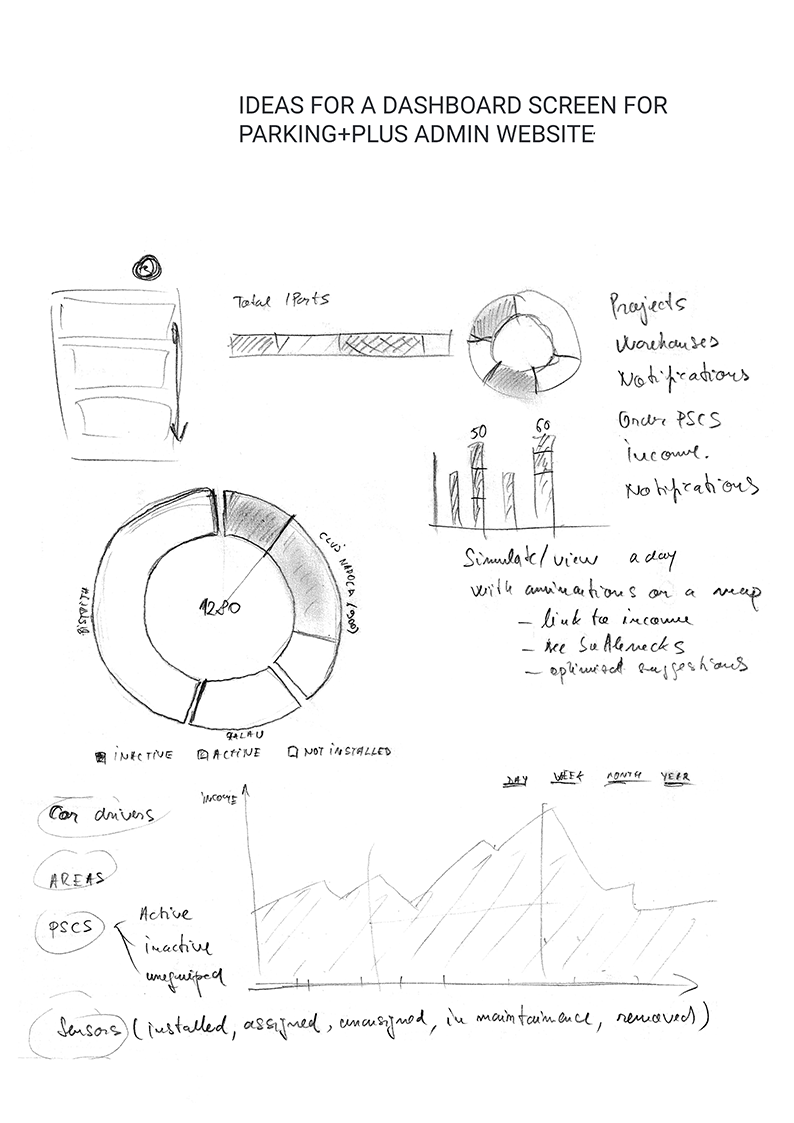 IDEAS FOR A DASHBOARD SCREEN FOR
PARKING+PLUS ADMIN WEBSITE
Total / Ports
Projects
Warehouses
Notifications
Order PSCS
income.
Notifications
50 60
Simulate/view a day
with animations on a map
- link to income
- see bottlenecks
- optimised suggestions
CLUJ NAPOCA (900)
1280
BISTRITA
GALAU
INACTIVE ACTIVE NOT INSTALLED
DAY WEEK MONTH YEAR
INCOME
Car drivers
AREAS
PSCS
Active
inactive
unequiped
Sensors (installed, assigned, unassigned, in maintainence, removed)